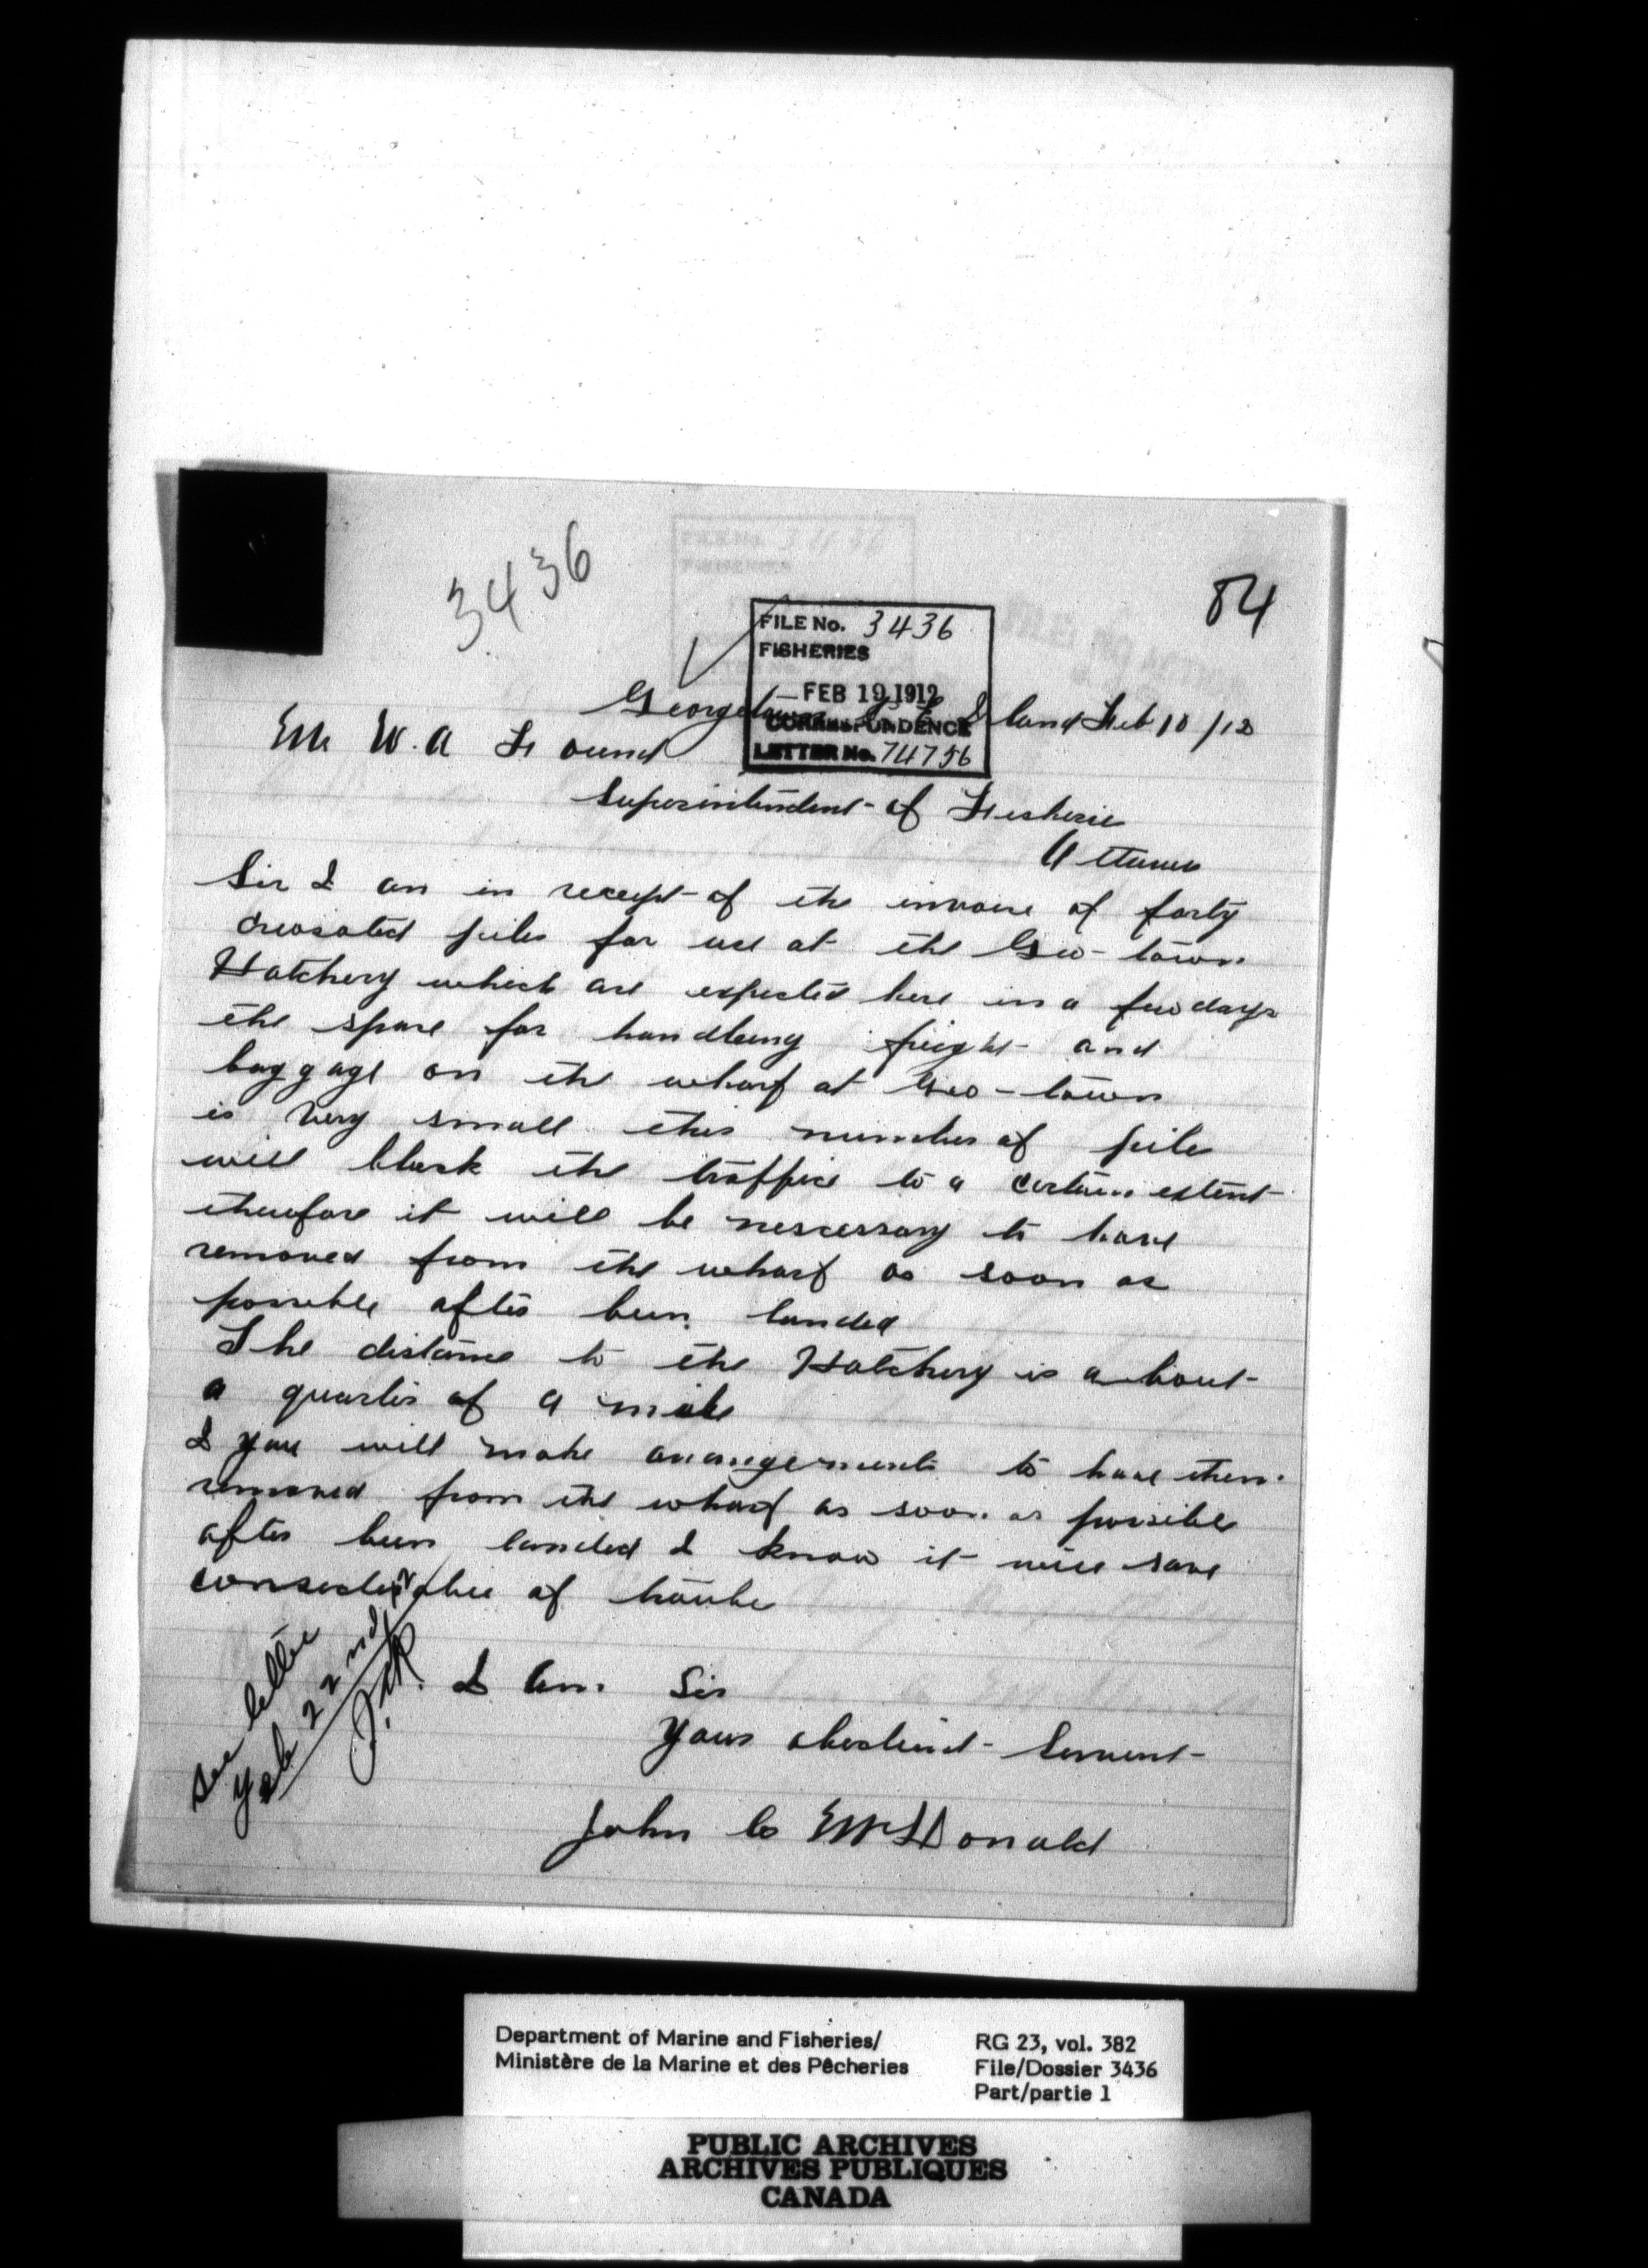 3436
84
FILE No. 3436
FISHERIES
FEB 19 1912
CORRESPONDENCE
LETTER No. 74756
Georgetown P. E. Island Feb 10 /12
Mr W. A Found
Superintendent of Fisherie
Ottawa
Sir I am in receipt of the invoice of forty
creosoted piles for use at the Geo-town
Hatchery which are expected here in a few days
the space for handleing freight and
baggage on the wharf at Geo-town
is very small this number of pile
will block the traffice to a certain extent
therefore it will be nescessary to have
removed from the wharf as soon as
possible after been landed
The distance to the Hatchery is about
a quarter of a mile
I you will make arrangements to have them
removed from the wharf as soon as possible
after been landed I know it will save
considerable of trouble
I am Sir
Your obedient Servent
John C McDonald
See letter
Feb 22nd, 12
Department of Marine and Fisheries/
Ministère de la Marine et des Pêcheries
RG 23, vol. 382
File/Dossier 3436
Part/partie 1
PUBLIC ARCHIVES
ARCHIVES PUBLIQUES
CANADA